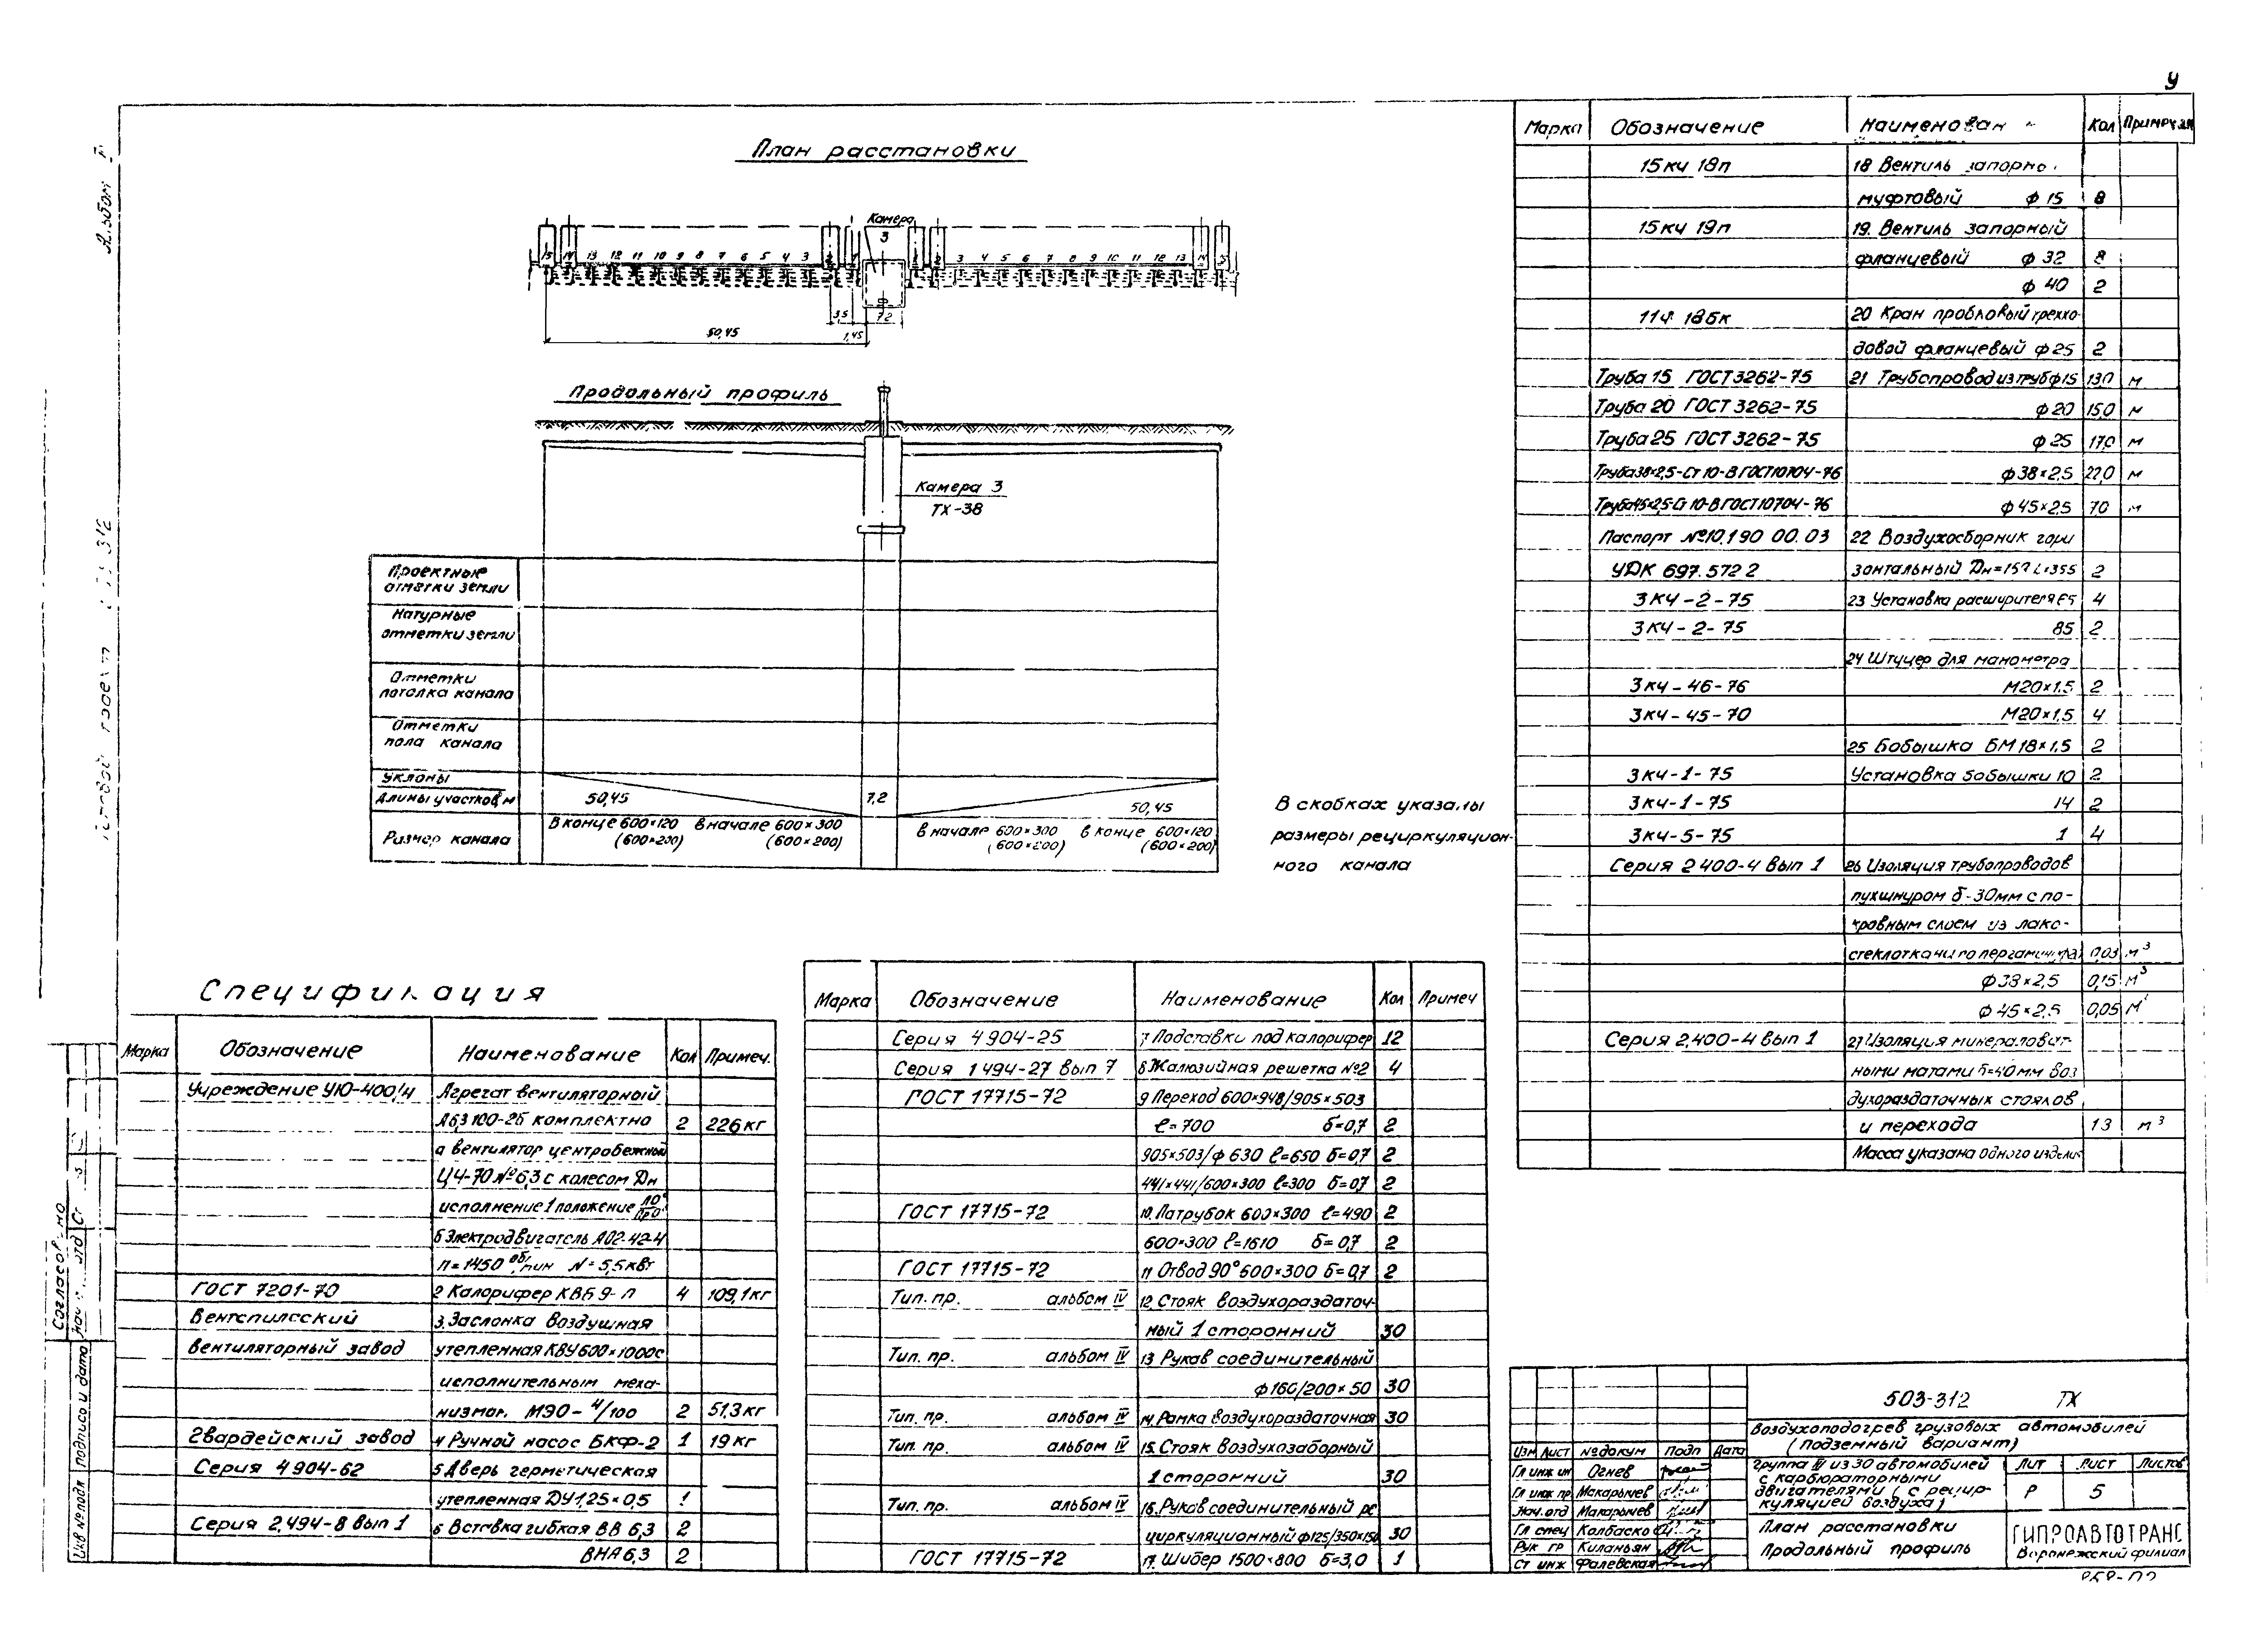 У
План расстановки
Камера
3
15 14 13 12 11 10 9 8 7 6 5 4 3 2 1
1 2 3 4 5 6 7 8 9 10 11 12 13 14
3,5 7,2
50,45 1,45
Продольный профиль
Камера 3
ТХ-38
Проектные
отметки земли
Натурные
отметки земли
Отметки
потолка канала
Отметки
пола канала
Уклоны
Длины участков, м 50,45 7,2 50,45
Размер канала
В конце 600×120 В начале 600×300
(600×200) (600×200)
в начале 600×300 в конце 600×120
(600×200) (600×200)
В скобках указаны
размеры рециркуляцион-
ного канала
Альбом
Спецификация
Марка Обозначение Наименование Кол Примеч.
Учреждение УЮ-400/4 Агрегат вентиляторный
А6,3 100-2б комплектно 2 226 кг
а вентилятор центробежный
Ц4-70 №6,3 с колесом Дн
исполнение 1 положение
б Электродвигатель АО2-42-4
n=1450 об/мин N=5,5 квт
ГОСТ 7201-70 2 Калорифер КВБ 9-П 4 109,1 кг
Вентспилсский 3. Заслонка воздушная
вентиляторный завод утепленная КВУ 600×1000 с
исполнительным меха-
низмом МЭО-4/100 2 51,3 кг
Гвардейский завод 4 Ручной насос БКФ-2 1 19 кг
Серия 4 904-62 5 Дверь герметическая
утепленная ДУ 1,25×0,5 1
Серия 2.494-8 вып 1 6 Вставка гибкая ВВ 6,3 2
ВНА 6,3 2
Марка Обозначение Наименование Кол Примеч
Серия 4 904-25 7 Подставки под калорифер 12
Серия 1 494-27 вып 7 8 Жалюзийная решетка №2 4
ГОСТ 17715-72 9 Переход 600×948/905×503
ℓ=700 б=0,7 2
905×503/ф 630 ℓ=650 б=0,7 2
441×441/600×300 ℓ=300 б=0,7 2
ГОСТ 17715-72 10. Патрубок 600×300 ℓ=490 2
600×300 ℓ=1610 б=0,7 2
ГОСТ 17715-72 11 Отвод 90° 600×300 б=0,7 2
Тип. пр. альбом IV 12. Стояк воздухораздаточ-
ный 1 сторонний 30
Тип. пр. альбом IV 13 Рукав соединительный
ф160/200×50 30
Тип. пр. альбом IV 14. Рамка воздухораздаточная 30
Тип. пр. альбом IV 15. Стояк воздухозаборный
1 сторонний 30
Тип. пр. альбом IV 16. Рукав соединительный ре
циркуляционный ф125/350×150 30
ГОСТ 17715-72 17. Шибер 1500×800 б=3,0 1
Марка Обозначение Кол
15 кч 18п 18 Вентиль
муфтовый ф 15 8
15 кч 19п 19. Вентиль запорный
фланцевый ф 32 8
ф 40 2
11ч 18бк 20 Кран пробковый треххо-
довой фланцевый ф 25 2
Труба 15 ГОСТ 3262-75 21 Трубопровод из труб ф15 13,0 м
Труба 20 ГОСТ 3262-75 ф 20 15,0 м
Труба 25 ГОСТ 3262-75 ф 25 17,0 м
Труба 38×2,5-Ст 10-В ГОСТ 10704-76 ф 38×2,5 22,0 м
Труба 45×2,5-Ст 10-В ГОСТ 10704-76 ф 45×2,5 7,0 м
Паспорт №10.190 00.03 22 Воздухосборник гори
УДК 697.572 2 зонтальный Дн=159 L=355 2
3 КЧ-2-75 23 Установка расширителя 65 4
3 КЧ-2-75 85 2
24 Штуцер для манометра
3 КЧ-46-76 М20×1,5 2
3 КЧ-45-70 М20×1,5 4
25 Бобышка БМ 18×1,5 2
3 КЧ-1-75 Установка бобышки 10 2
3 КЧ-1-75 14 2
3 КЧ-5-75 1 4
Серия 2 400-4 вып 1 26 Изоляция трубопроводов
пухшнуром б-30мм с по-
кровным слоем из лако-
стеклоткани по пергамину 0,03 м³
ф 38×2,5 0,15 м³
ф 45×2,5 0,05 м
Серия 2.400-4 вып 1 27 Изоляция минераловат-
ными матами б=40мм воз
духораздаточных стояков
и перехода 1 3 м³
Масса указана одного изделия
503-312 ТХ
Воздухоподогрев грузовых автомобилей
(подземный вариант)
Группа IV из 30 автомобилей
с карбюраторными
двигателями (с рецир-
куляцией воздуха)
Лит Лист Листов
Р 5
План расстановки
Продольный профиль
ГИПРОАВТОТРАНС
Воронежский филиал
Изм Лист № докум Подп Дата
Гл инж ин Огнев
Гл инж пр. Макарычев
Нач. отд Макарычев
Гл спец Колбаско
Рук гр Киланьян
Ст инж Фалевская
Инв № подл Подпись и дата